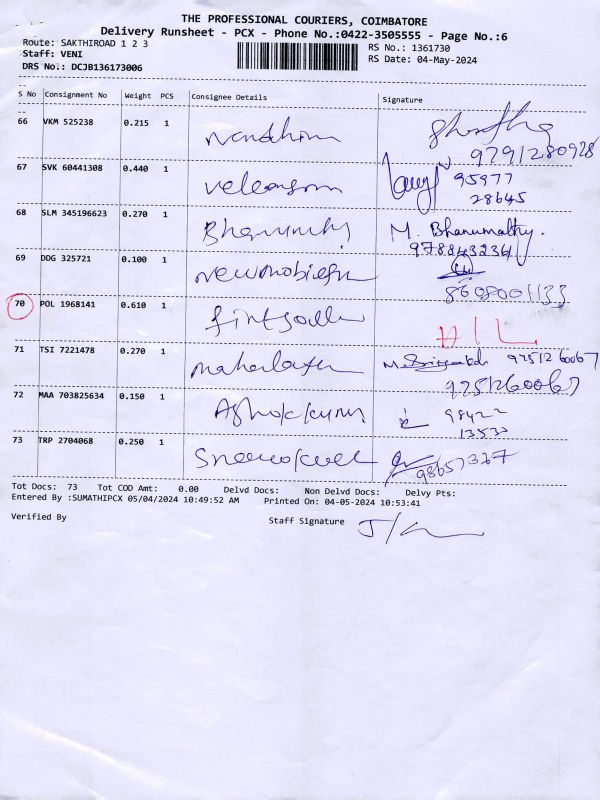 THE PROFESSIONAL COURIERS, COIMBATORE
Delivery Runsheet - PCX - Phone No.:0422-3505555 - Page No.:6
Route: SAKTHIROAD 1 2 3
RS No.: 1361730
Staff: VENI
RS Date: 04-May-2024
DRS No.: DCJB136173006
S No Consignment No Weight PCS Consignee Details Signature
66 VKM 525238 0.215 1
9791280928
67 SVK 60441308 0.440 1
95977
28645
68 SLM 345196623 0.270 1 M. Bhanumathy.
9788432341
69 DDG 325721 0.100 1
8608001133
70 POL 1968141 0.610 1
71 TSI 7221478 0.270 1 9751260067
9751260067
72 MAA 703825634 0.150 1 Ashokkumar
98422
13533
73 TRP 2704068 0.250 1
Tot Docs: 73 Tot COD Amt: 0.00 Delvd Docs: Non Delvd Docs: Delvy Pts:
Entered By :SUMATHIPCX 05/04/2024 10:49:52 AM Printed On: 04-05-2024 10:53:41
Verified By Staff Signature